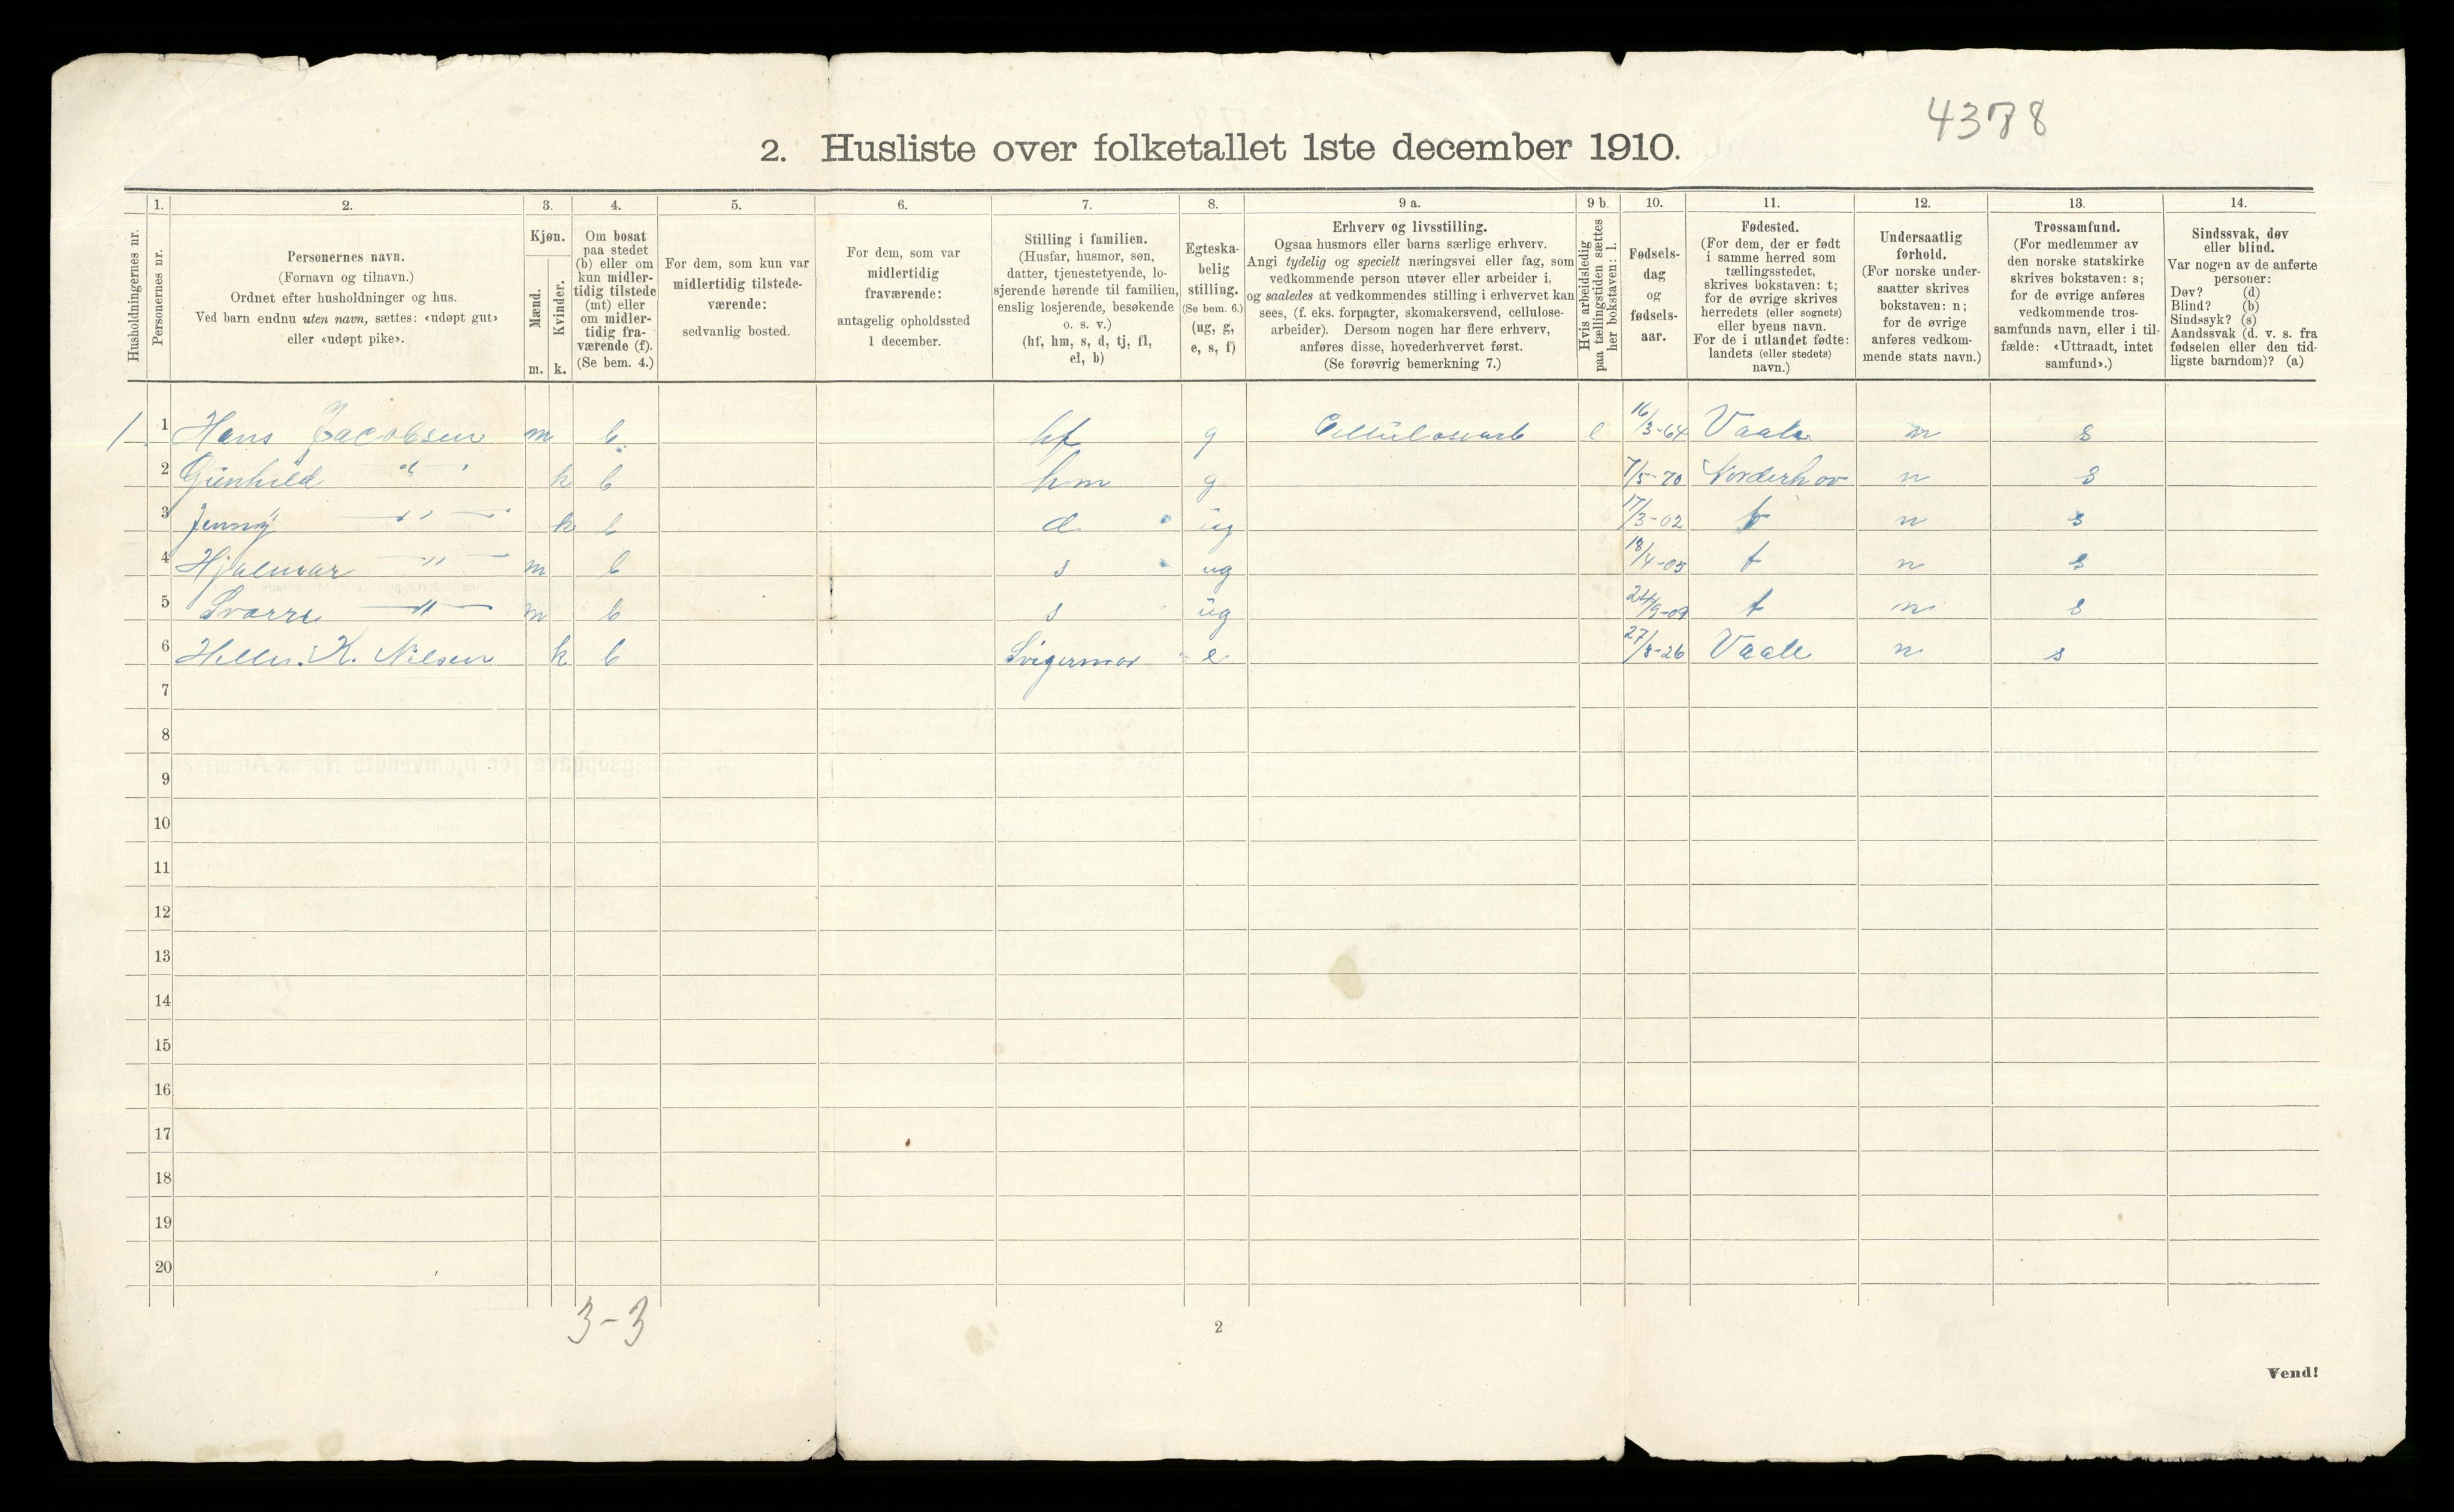 4378
2. Husliste over folketallet 1ste december 1910.
Husholdningernes nr.
1.
Personernes nr.
2.
Personernes navn.
(Fornavn og tilnavn.)
Ordnet efter husholdninger og hus.
Ved barn endnu uten navn, sættes: «udøpt gut»
eller «udøpt pike».
3.
Kjøn.
Mænd.
Kvinder.
m. k.
4.
Om bosat
paa stedet
(b) eller om
kun midler-
tidig tilstede
(mt) eller
om midler-
tidig fra-
værende (f).
(Se bem. 4.)
5.
For dem, som kun var
midlertidig tilstede-
værende:
sedvanlig bosted.
6.
For dem, som var
midlertidig
fraværende:
antagelig opholdssted
1 december.
7.
Stilling i familien.
(Husfar, husmor, søn,
datter, tjenestetyende, lo-
sjerende hørende til familien,
enslig losjerende, besøkende
o. s. v.)
(hf, hm, s, d, tj, fl,
el, b)
8.
Egteska-
belig
stilling.
(Se bem. 6.)
(ug, g,
e, s, f)
9 a.
Erhverv og livsstilling.
Ogsaa husmors eller barns særlige erhverv.
Angi tydelig og specielt næringsvei eller fag, som
vedkommende person utøver eller arbeider i,
og saaledes at vedkommendes stilling i erhvervet kan
sees, (f. eks. forpagter, skomakersvend, cellulose-
arbeider). Dersom nogen har flere erhverv,
anføres disse, hovederhvervet først.
(Se forøvrig bemerkning 7.)
9 b.
Hvis arbeidsledig
paa tællingstiden sættes
her bokstaven: l.
10.
Fødsels-
dag
og
fødsels-
aar.
11.
Fødested.
(For dem, der er født
i samme herred som
tællingsstedet,
skrives bokstaven: t;
for de øvrige skrives
herredets (eller sognets)
eller byens navn.
For de i utlandet fødte:
landets (eller stedets)
navn.)
12.
Undersaatlig
forhold.
(For norske under-
saatter skrives
bokstaven: n;
for de øvrige
anføres vedkom-
mende stats navn.)
13.
Trossamfund.
(For medlemmer av
den norske statskirke
skrives bokstaven: s;
for de øvrige anføres
vedkommende tros-
samfunds navn, eller i til-
fælde: «Uttraadt, intet
samfund».)
14.
Sindssvak, døv
eller blind.
Var nogen av de anførte
personer:
Døv? (d)
Blind? (b)
Sindssyk? (s)
Aandssvak (d. v. s. fra
fødselen eller den tid-
ligste barndom)? (a)
1. 1 Hans Jacobsen m b hf g Cellulosearb l 16/3-64 Vaale n s
2 Gunhild —"— k b hm g 7/5-70 Norderhov n s
3 Jenny —"— k b d ug 17/3-02 t n s
4 Hjalmar —"— m b s ug 18/4-05 t n s
5 Sverre —"— m b s ug 24/9-09 t n s
6 K. Nilsen k b Svigermor e 27/8-26 Vaale n s
7
8
9
10
11
12
13
14
15
16
17
18
19
20
3-3
2
Vend!